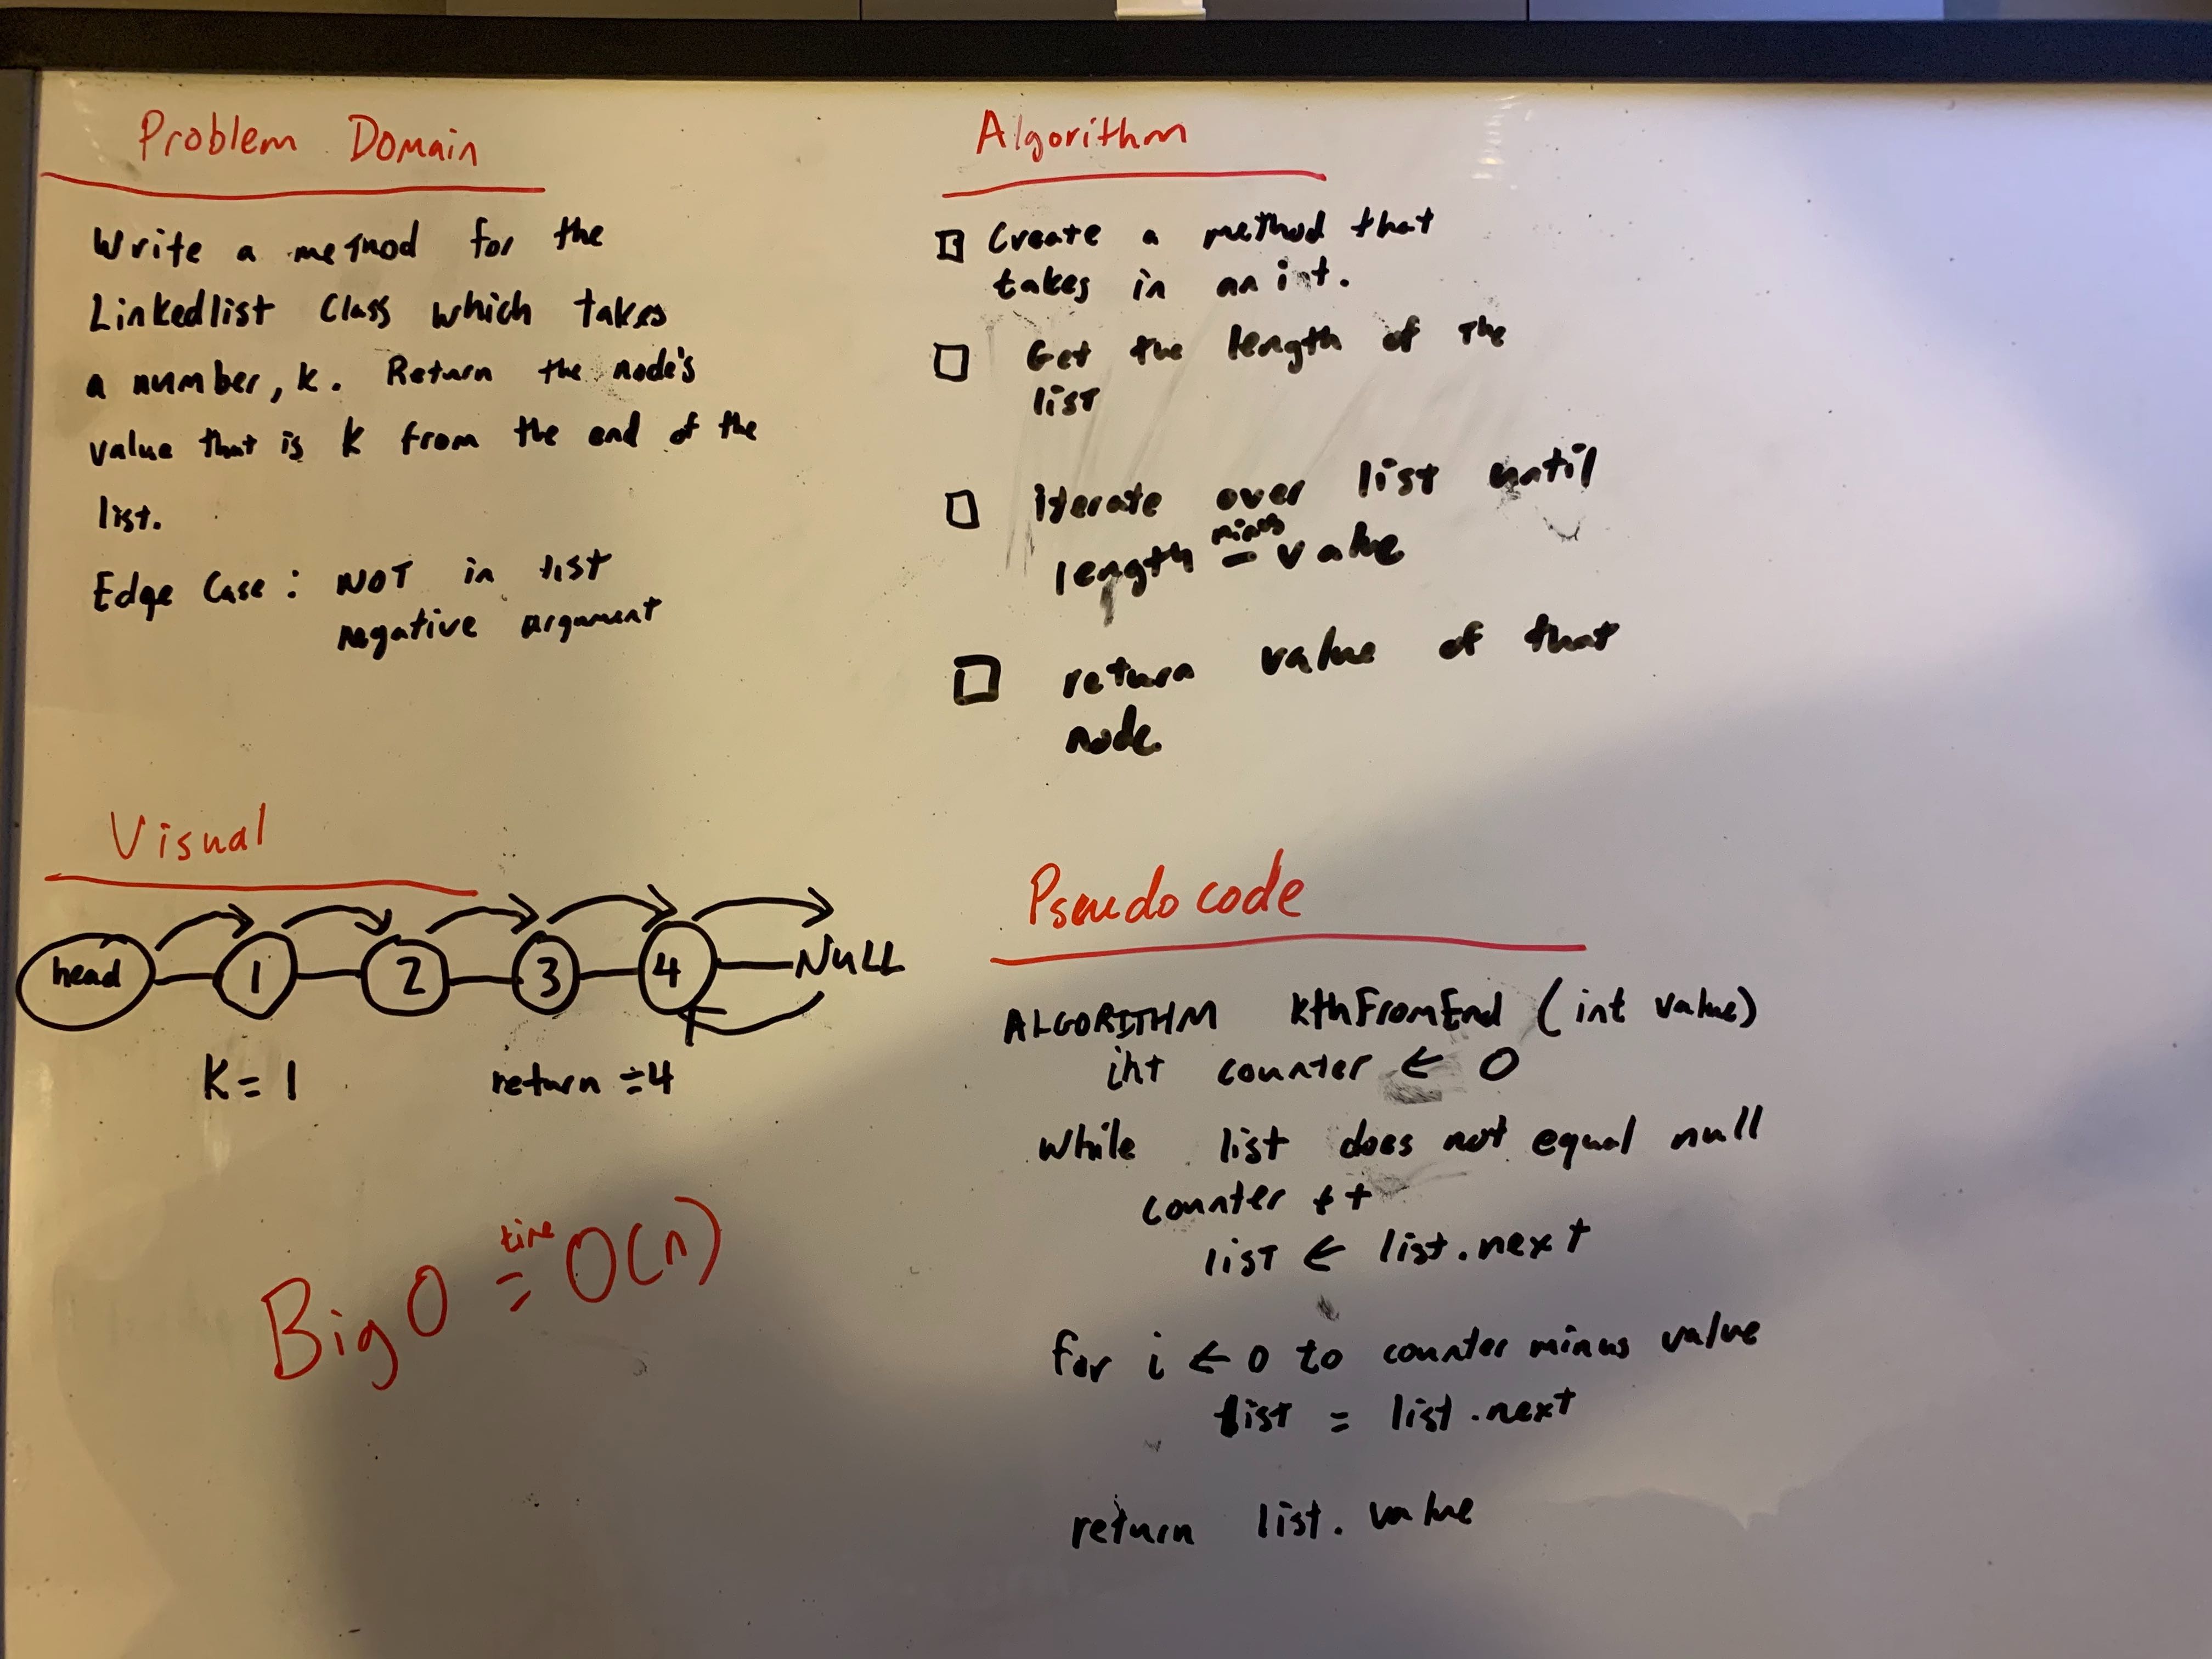 Problem Domain
Write a method for the
Linkedlist Class which takes
a number, k. Return the node's
value that is k from the end of the
list.
Edge Case: NOT in list
negative argument
Visual
head 1 2 3 4 NULL
K = 1 return = 4
Big O = O(n)
time
Algorithm
Create a method that
takes in an int.
Get the length of the
list
iterate over list until
minus
length - value
return value of that
node.
Pseudo code
ALGORITHM kthFromEnd (int value)
int counter ← 0
while list does not equal null
counter ++
list ← list.next
for i ← 0 to counter minus value
list = list.next
return list.value